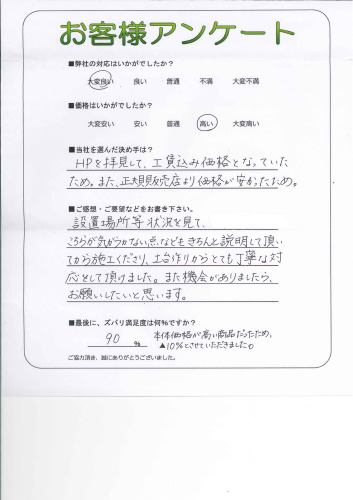 お客様アンケート
■弊社の対応はいかがでしたか?
大変良い 良い 普通 不満 大変不満
■価格はいかがでしたか?
大変安い 安い 普通 高い 大変高い
■当社を選んだ決め手は?
HPを拝見して、工賃込み価格となっていた
ため。また、正規販売店より価格が安かったため。
■ご感想・ご要望などをお書き下さい。
設置場所等状況を見て、
こちらが気がつかない点などもきちんと説明して頂い
てから施工くださり、土台作りからとても丁寧な対
応をして頂けました。また機会がありましたら、
お願いしたいと思います。
■最後に、ズバリ満足度は何%ですか?
90 %
本体価格が高い商品だったため、
▲10%とさせていただきました。
ご協力頂き、誠にありがとうございました。